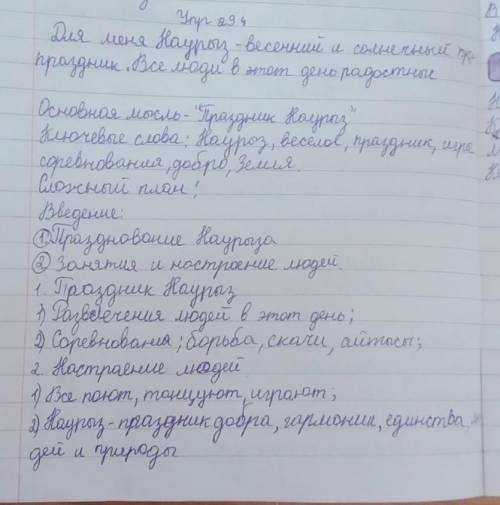 Упр 294
Для меня Наурыз - весенний и солнечный пра-
праздник. Все люди в этот день радостны
Основная мысль - "Праздник Наурыз"
Ключевые слова: Наурыз, веселое, праздник, игра
соревнования, добро, Земля.
Сложный план!
Введение:
① Празднование Наурыза
② Занятия и настроение людей.
1. Праздник Наурыз
1) Развлечения людей в этот день;
2) Соревнования; борьба, скачки, айтысы;
2. Настроение людей
1) Все поют, танцуют, играют;
2) Наурыз - праздник добра, гармонии, единства,
дей и природы